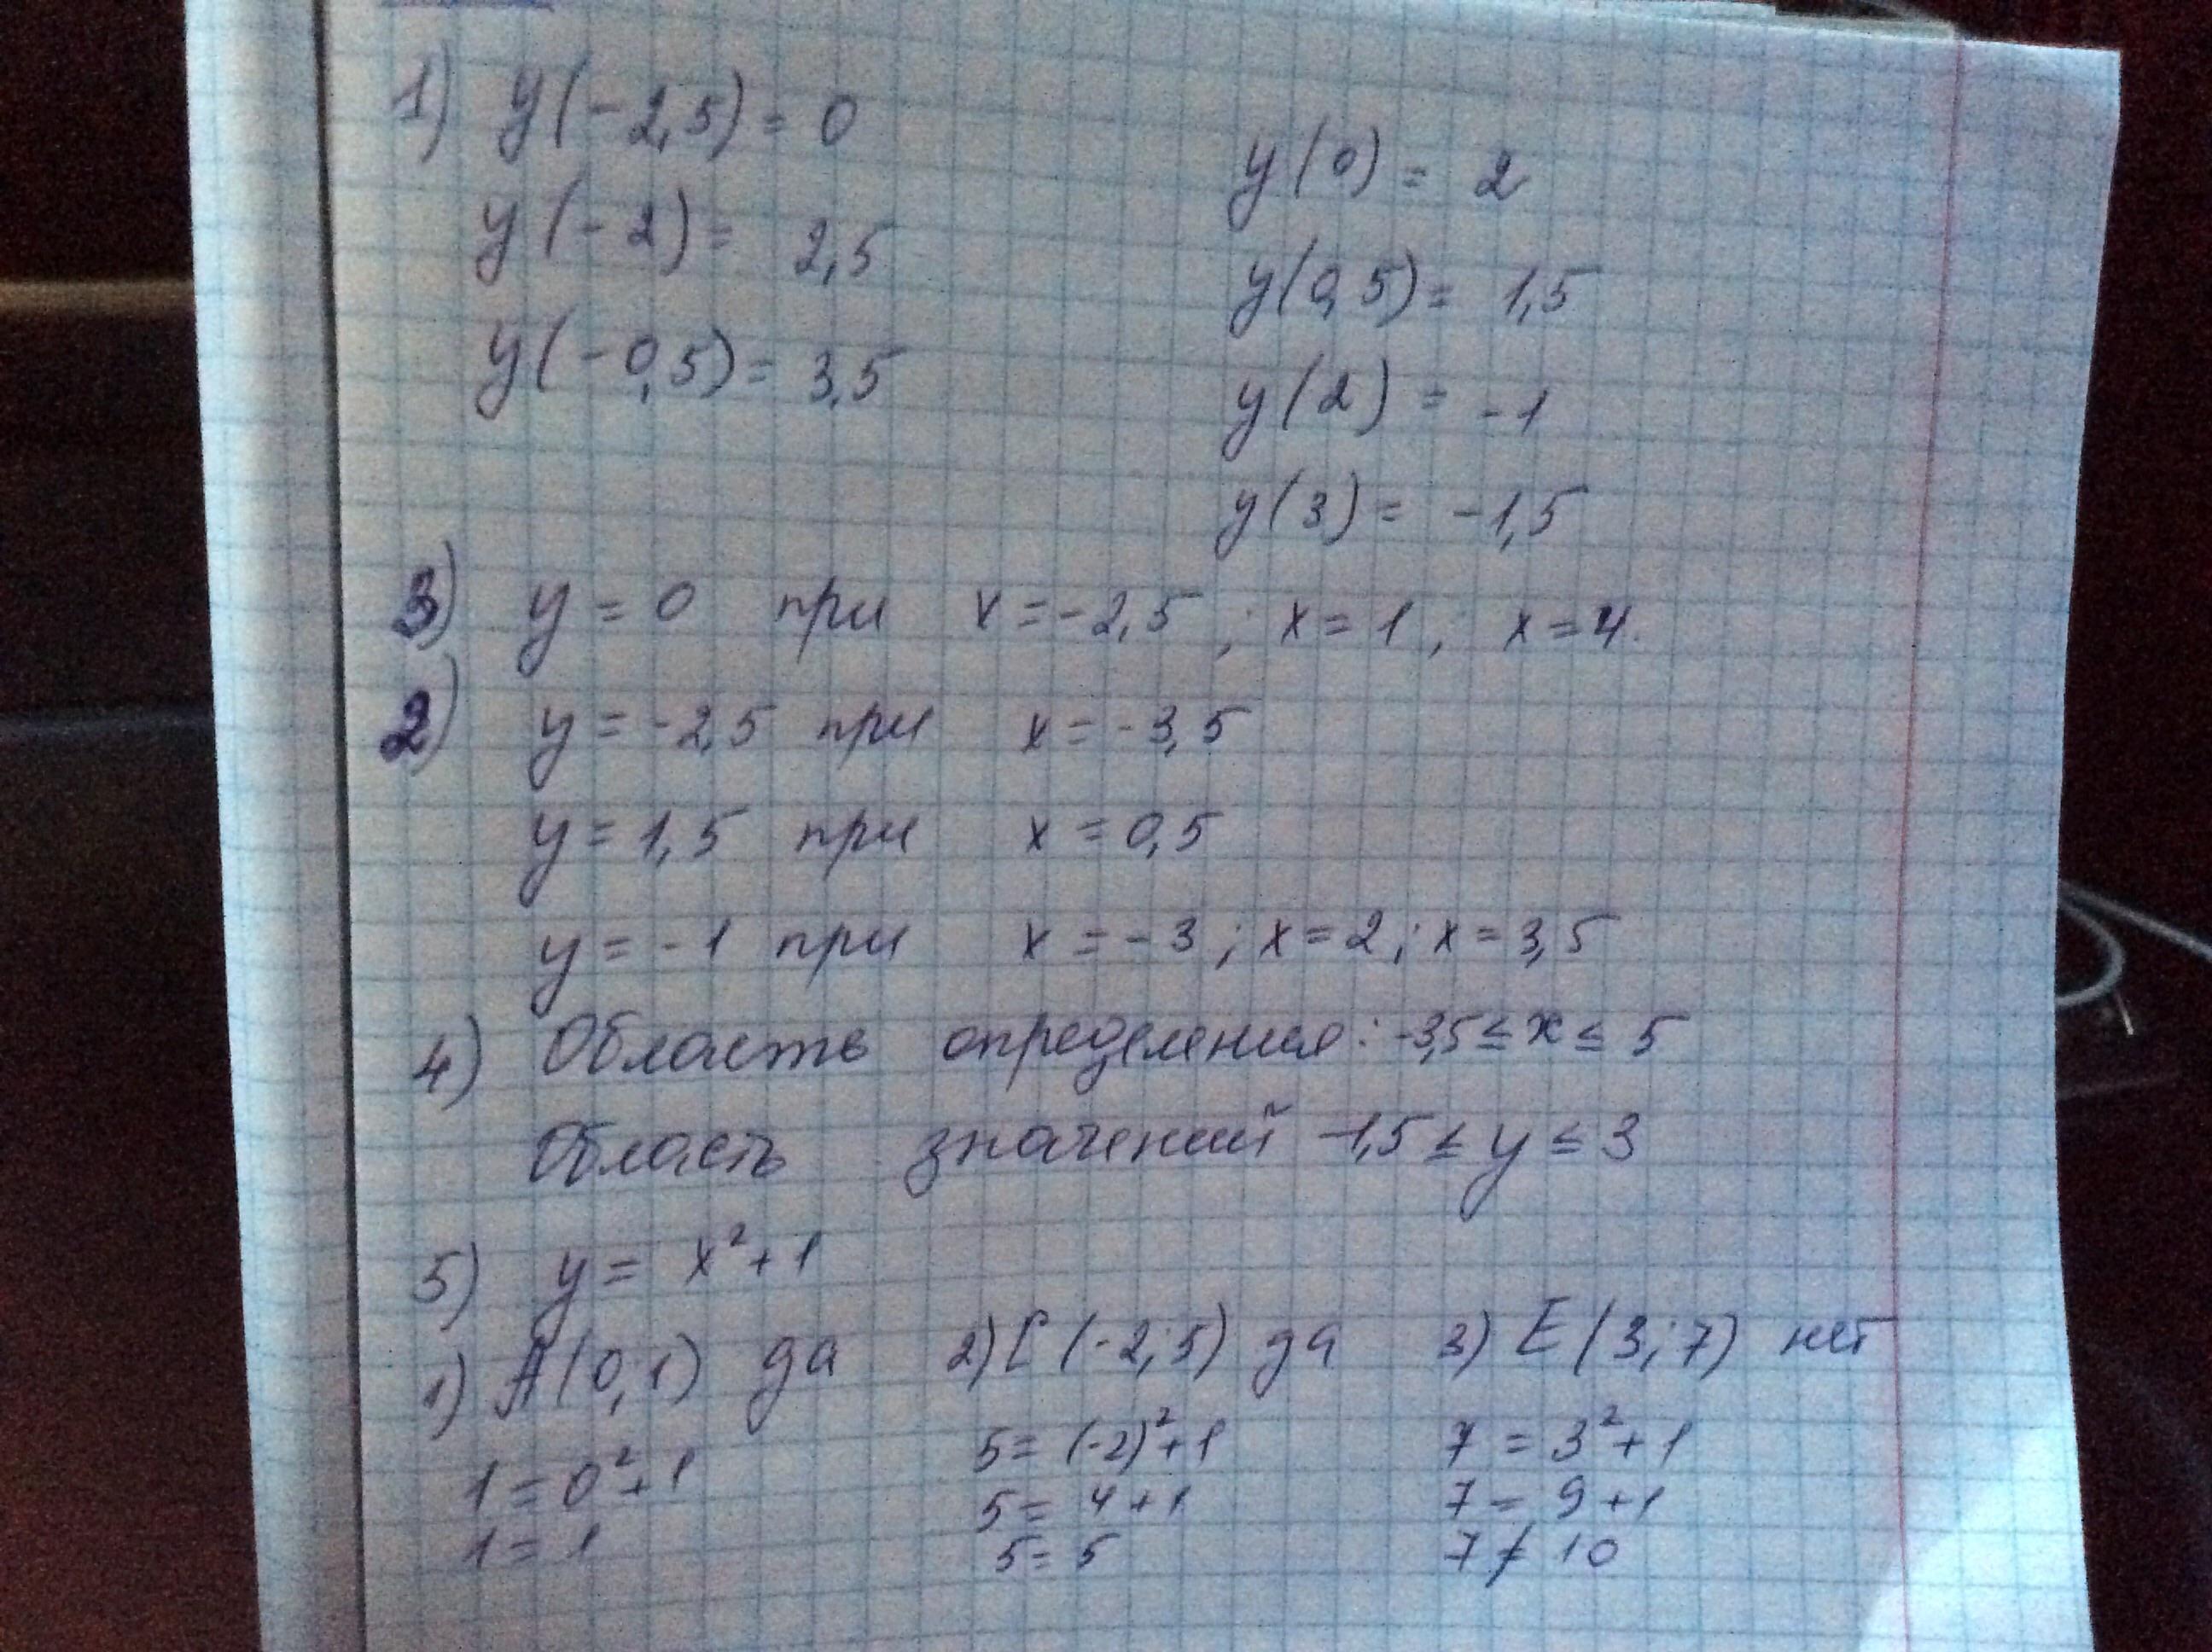 1) y(-2,5) = 0
y(-2) = 2,5
y(-0,5) = 3,5
y(0) = 2
y(0,5) = 1,5
y(2) = -1
y(3) = -1,5
3) y = 0 при x = -2,5 ; x = 1 ; x = 4.
2) y = -2,5 при x = -3,5
y = 1,5 при x = 0,5
y = -1 при x = -3 ; x = 2 ; x = 3,5
4) Область определения: -3,5 ≤ x ≤ 5
Область значений -1,5 ≤ y ≤ 3
5) y = x² + 1
1) A(0;1) да 2) C(-2;5) да 3) E(3;7) нет
1 = 0² + 1 5 = (-2)² + 1 7 = 3² + 1
1 = 1 5 = 4 + 1 7 = 9 + 1
5 = 5 7 ≠ 10